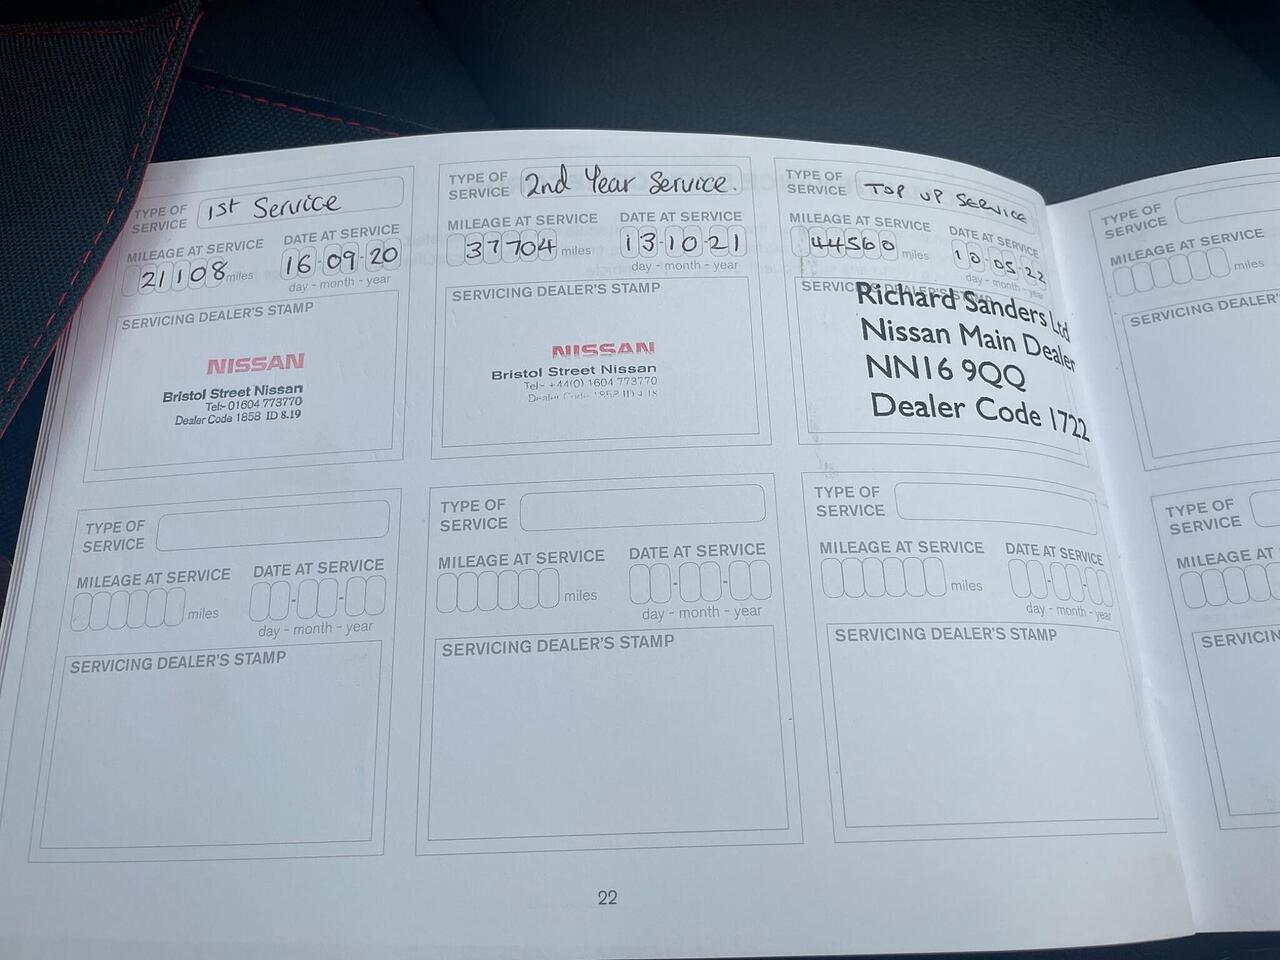 TYPE OF SERVICE 1st Service
MILEAGE AT SERVICE DATE AT SERVICE
21108 miles 16-09-20
day - month - year
SERVICING DEALER'S STAMP
NISSAN
Bristol Street Nissan
Tel:- 01604 773770
Dealer Code 1858 ID 8.19
TYPE OF SERVICE 2nd Year Service.
MILEAGE AT SERVICE DATE AT SERVICE
37704 miles 13-10-21
day - month - year
SERVICING DEALER'S STAMP
NISSAN
Bristol Street Nissan
Tel:- +44(0) 1604 773770
Dealer Code 1858 ID
TYPE OF SERVICE TOP UP SERVICE
MILEAGE AT SERVICE DATE AT SERVICE
44560 miles 10-05-22
day - month - year
SERVICING DEALER'S STAMP
Richard Sanders Ltd
Nissan Main Dealer
NN16 9QQ
Dealer Code 1722
TYPE OF SERVICE
MILEAGE AT SERVICE
miles
SERVICING DEALER'S
TYPE OF SERVICE
MILEAGE AT SERVICE DATE AT SERVICE
miles
day - month - year
SERVICING DEALER'S STAMP
TYPE OF SERVICE
MILEAGE AT SERVICE DATE AT SERVICE
miles
day - month - year
SERVICING DEALER'S STAMP
TYPE OF SERVICE
MILEAGE AT SERVICE DATE AT SERVICE
miles
day - month - year
SERVICING DEALER'S STAMP
TYPE OF SERVICE
MILEAGE AT
22